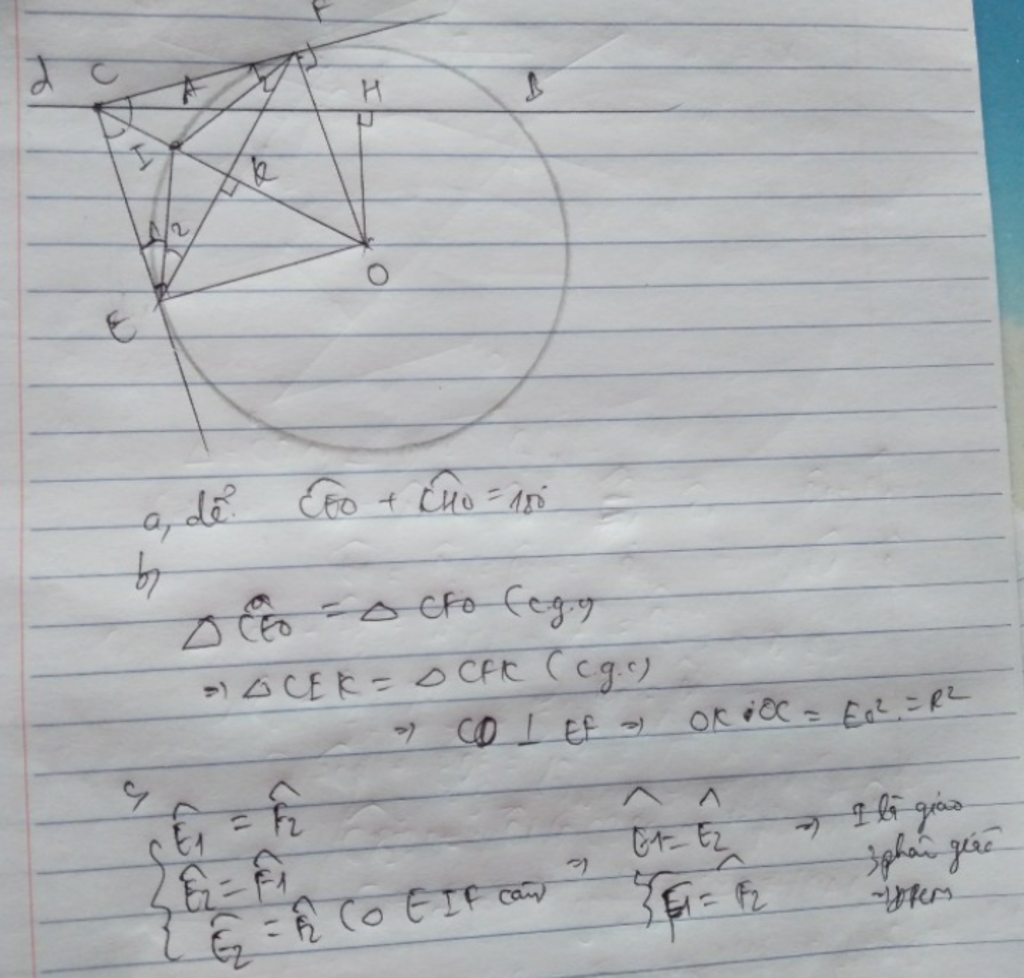 F
d C A H B
I K
1 2
O
E
a, dễ: CEO + CHO = 180°
b,
△ CEO = △ CFO (c.g.c)
=> △ CEK = △ CFK (c.g.c)
=> CO ⊥ EF => OK.OC = EO² = R²
c,
Ê1 = F̂2
Ê2 = F̂1
Ê2 = F̂2 (△ EIF cân)
=> Ê1 = Ê2
F̂1 = F̂2
=> I là giao 3 phân giác
=> đpcm